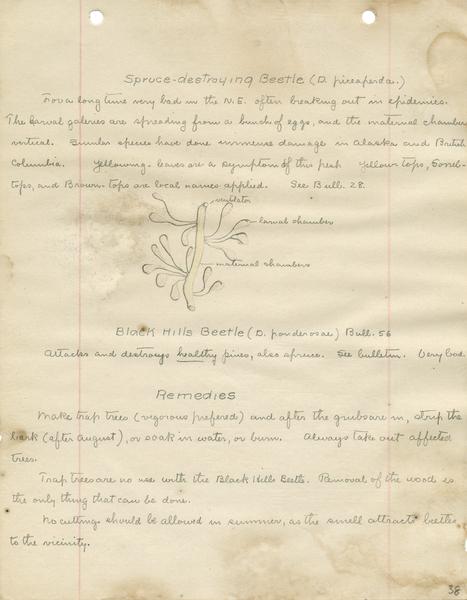 Spruce-destroying Beetle (D. piceaperda.)
For a long time very bad in the N.E. often breaking out in epidemics.
The larval galeries are spreading from a bunch of eggs, and the maternal chamber
vertical. Similar species have done immense damage in Alaska and British
Columbia. Yellowing leaves are a symptom of this pest Yellow tops, Sorrel-
tops, and Brown-tops are local names applied. See Bull. 28.
ventilator
larval chambers
maternal chambers
Black Hills Beetle (D. ponderosae) Bull. 56
Attacks and destroys healthy pines, also spruce. See bulletin. Very bad.
Remedies
Make trap trees (vigorous prefered) and after the grubs are in, strip the
bark (after August), or soak in water, or burn. Always take out affected
trees.
Trap trees are no use with the Black Hills Beetle. Removal of the wood is
the only thing that can be done.
No cutting should be allowed in summer, as the smell attracts beetles
to the vicinity.
38